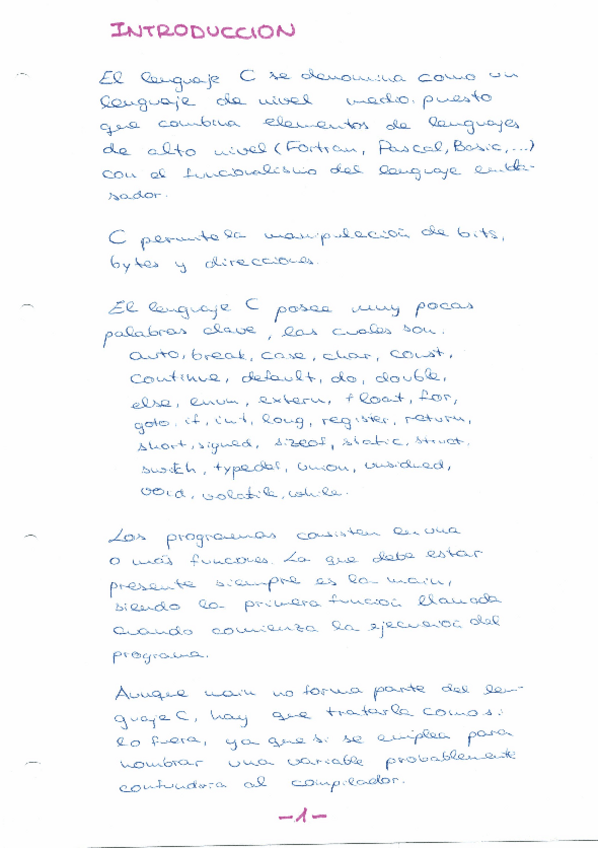 INTRODUCCION
El lenguaje C se denomina como un
lenguaje de nivel medio. puesto
que combina elementos de lenguajes
de alto nivel (Fortran, Pascal, Basic, ...)
con el funcionalismo del lenguaje
sador.
C permite la manipulación de bits,
bytes y direcciones.
El lenguaje C posee muy pocas
palabras clave, las cuales son.
auto, break, case, char, const,
continue, default, do, double,
else, enum, extern, float, for,
goto. if, int, long, register, return,
short, signed, sizeof, static, struct.
switch, typedef, union, unsigned,
void, volatile, while.
Los programas consisten en una
o más funciones. La que debe estar
presente siempre es la main,
siendo la primera función llamada
cuando comienza la ejecución del
programa.
Aunque main no forma parte del len-
guaje C, hay que tratarla como si
lo fuera, ya que si se emplea para
nombrar una variable probablemente
confundiria al compilador.
-1-